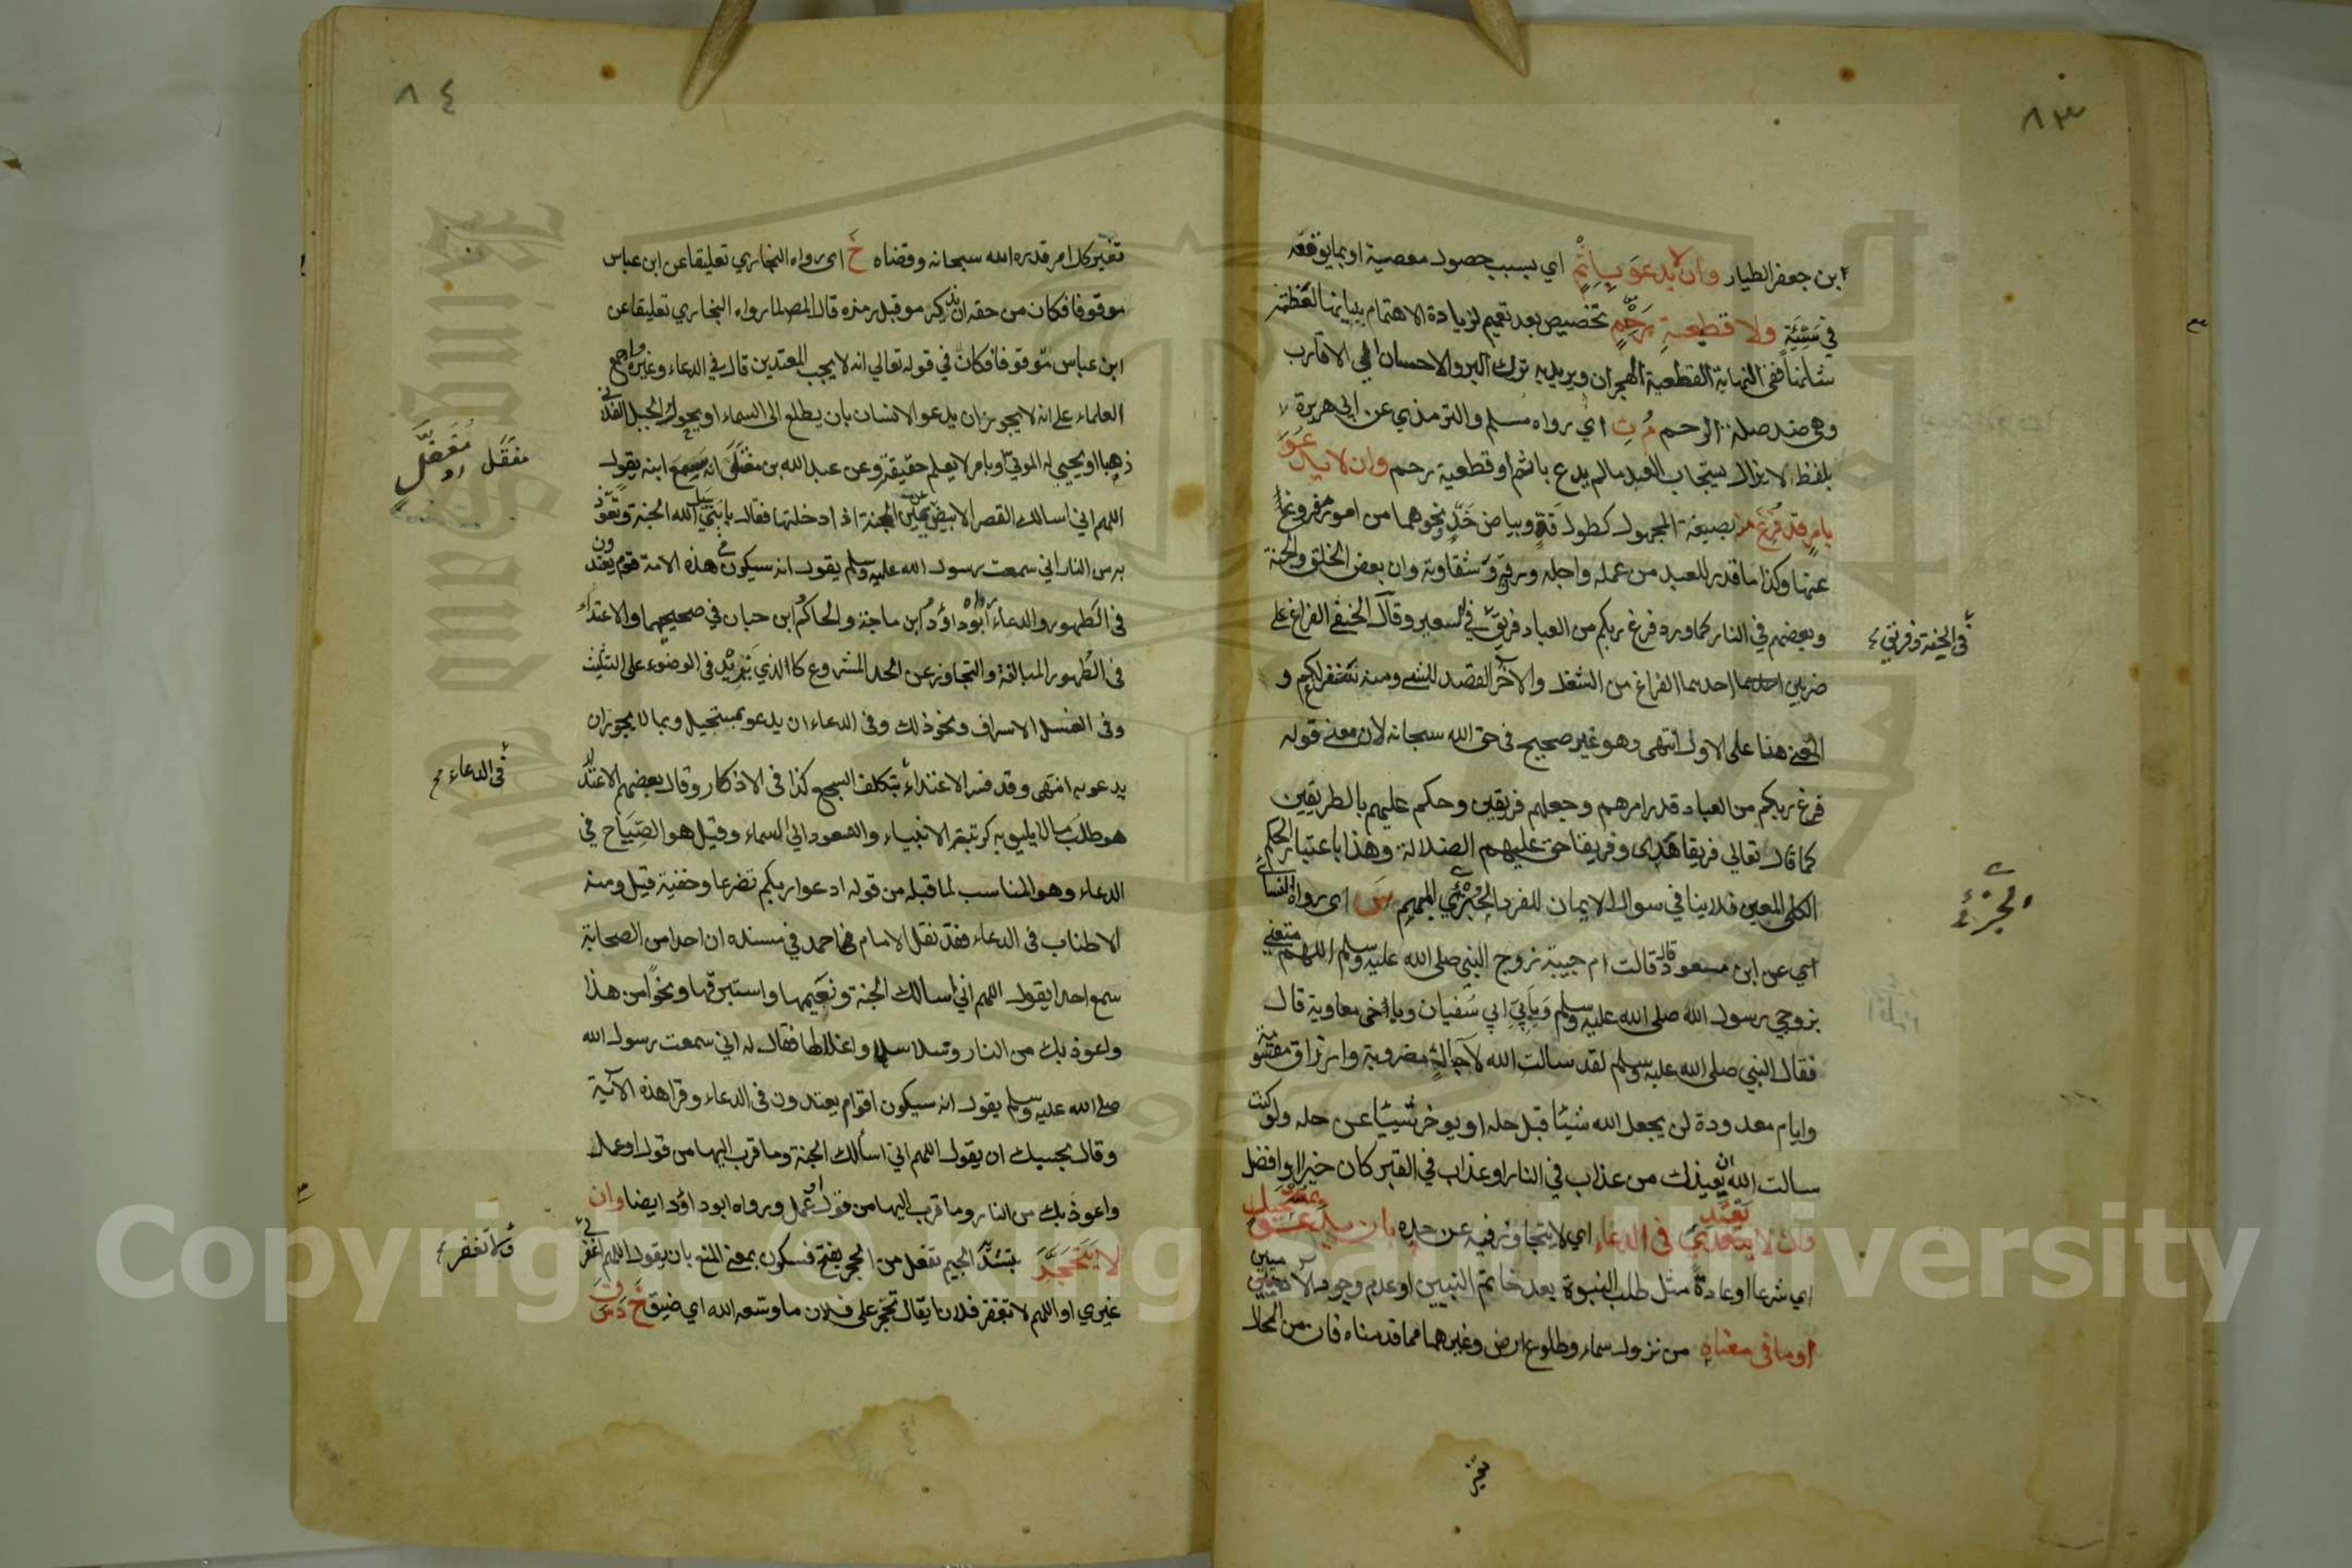 ٨٣
ابن جعفر الطيار وان لا يدعو بإثم اي بسبب حصول معصية او بما يوقعه
في سيئة ولا قطيعة رحم تخصيص بعد تعميم لزيادة الاهتمام ببيانها لعظمة
شانها ففي النهاية القطيعة الهجران ويريد به ترك البر والاحسان الي الاقارب
وهي ضد صلة الرحم م ت اي رواه مسلم والترمذي عن ابي هريرة
بلفظ لا يزال يستجاب العبد مالم يدع باثم او قطيعة رحم وان لا يدعو
بامر قد فرغ منه بصيغة المجهول كطول قد وبياض خد ونحوهما من امور مفروغ
عنها وكذا ما قدر للعبد من عمله واجله ورزقه وشقاوته وان بعض الخلق في الجنة
وبعضهم في النار كما ورد فرغ ربكم من العباد فريق في السعير وقال الحنفي الفراغ على
في الجنة وفريق
ضربين احدهما الفراغ من الشغل والآخر القصد للشئ ومنه سنفرغ لكم و
المعنى هنا على الاول انتهى وهو غير صحيح في حق الله سبحانه لان معنى قوله
فرغ ربكم من العباد قدر امرهم وجعلهم فريقين وحكم عليهم بالطريقين
كما قال تعالي فريقا هدى وفريقا حق عليهم الضلالة وهذا باعتبار الحكم
الكلي المعين فلا ينافي سوال الايمان للفرد الجزئي المبهم س اي رواه النسائي
الجزئي
اي عن ابن مسعود قال قالت ام حبيبة زوج النبي صلى الله عليه وسلم اللهم متعني
بزوجي رسول الله صلى الله عليه وسلم وبأبي ابي سفيان وباخي معاوية قال
فقال النبي صلى الله عليه وسلم لقد سالت الله لآجال مضروبة وارزاق مقسومة
وايام معدودة لن يجعل الله شيئا قبل حله او يوخر شيئا عن حله ولو كنت
سالت الله ان يعيذك من عذاب في النار او عذاب في القبر كان خيرا وافضل
وان لا يعتدي في الدعاء اي لا يتجاوز فيه عن حده بان يدعو بمستحيل
اي شرعا او عادة مثل طلب النبوة بعد خاتم النبيين او عدم وجود
او ما في معناه من نزول سماء وطلوع ارض وغيرهما مما قدمناه فان من المحال
تغير
٨٤
تغير كل امر قدره الله سبحانه وقضاه خ اي رواه البخاري تعليقا عن ابن عباس
موقوفا فكان من حقه ان يذكر مو قبل رمزه قال المص لما رواه البخاري تعليقا عن
ابن عباس موقوفا فكان في قوله تعالي انه لا يحب المعتدين قال في الدعاء وغيره واجمع
العلماء على انه لا يجوز ان يدعو الانسان بان يطلع الى السماء او يحول الجبل الفلاني
ذهبا او يحيي له الموتى او بامر لا يعلم حقيقة وعن عبد الله بن مغفل انه سمع ابنه يقول
مغفل
اللهم اني اسالك القصر الابيض عن يمين الجنة اذا دخلتها فقال يا بني سل الله الجنة وتعوذ
به من النار اني سمعت رسول الله عليه وسلم يقول انه سيكون في هذه الامة قوم يعتدون
في الطهور والدعاء رواه ابو داؤد ابن ماجة والحاكم ابن حبان في صحيحهما والاعتداء
في الطهور المبالغة والتجاوز عن الحد المشروع كالذي يزيد في الوضوء على التثليث
وفي الغسل الاسراف ونحو ذلك وفي الدعاء ان يدعو بمستحيل وبما لا يجوز ان
يدعو به انتهى وقد فسر الاعتداء بتكلف السجع كذا في الاذكار وقال بعضهم الاعتداء
في الدعاء
هو طلب ما لا يليق به كرتبة الانبياء والصعود الي السماء وقيل هو الصياح في
الدعاء وهو المناسب لما قبله من قوله ادعوا ربكم تضرعا وخفية قيل ومنه
الاطناب في الدعاء فقد نقل الامام احمد في مسنده ان احدا من الصحابة
سمع احدا يقول اللهم اني اسالك الجنة ونعيمها واستبرقها ونحوا من هذا
واعوذ بك من النار وسلاسلها واغلالها فقال له اني سمعت رسول الله
صلى الله عليه وسلم يقول انه سيكون اقوام يعتدون في الدعاء وقرا هذه الآية
وقال بحسبك ان يقول اللهم اني اسألك الجنة وما قرب اليها من قول او عمل
واعوذ بك من النار وما قرب اليها من قول او عمل ورواه ابو داؤد ايضا وان
لا يتحجر بتشديد الجيم تفعل من الحجر بفتح فسكون بمعنى المنع بان يقول اللهم اغفر لي
ولا تغفر
غيري او اللهم لا تغفر فلان يقال تحجر على فلان ما وسعه الله اي ضيق خ د س ق
Copyright © King Saud University